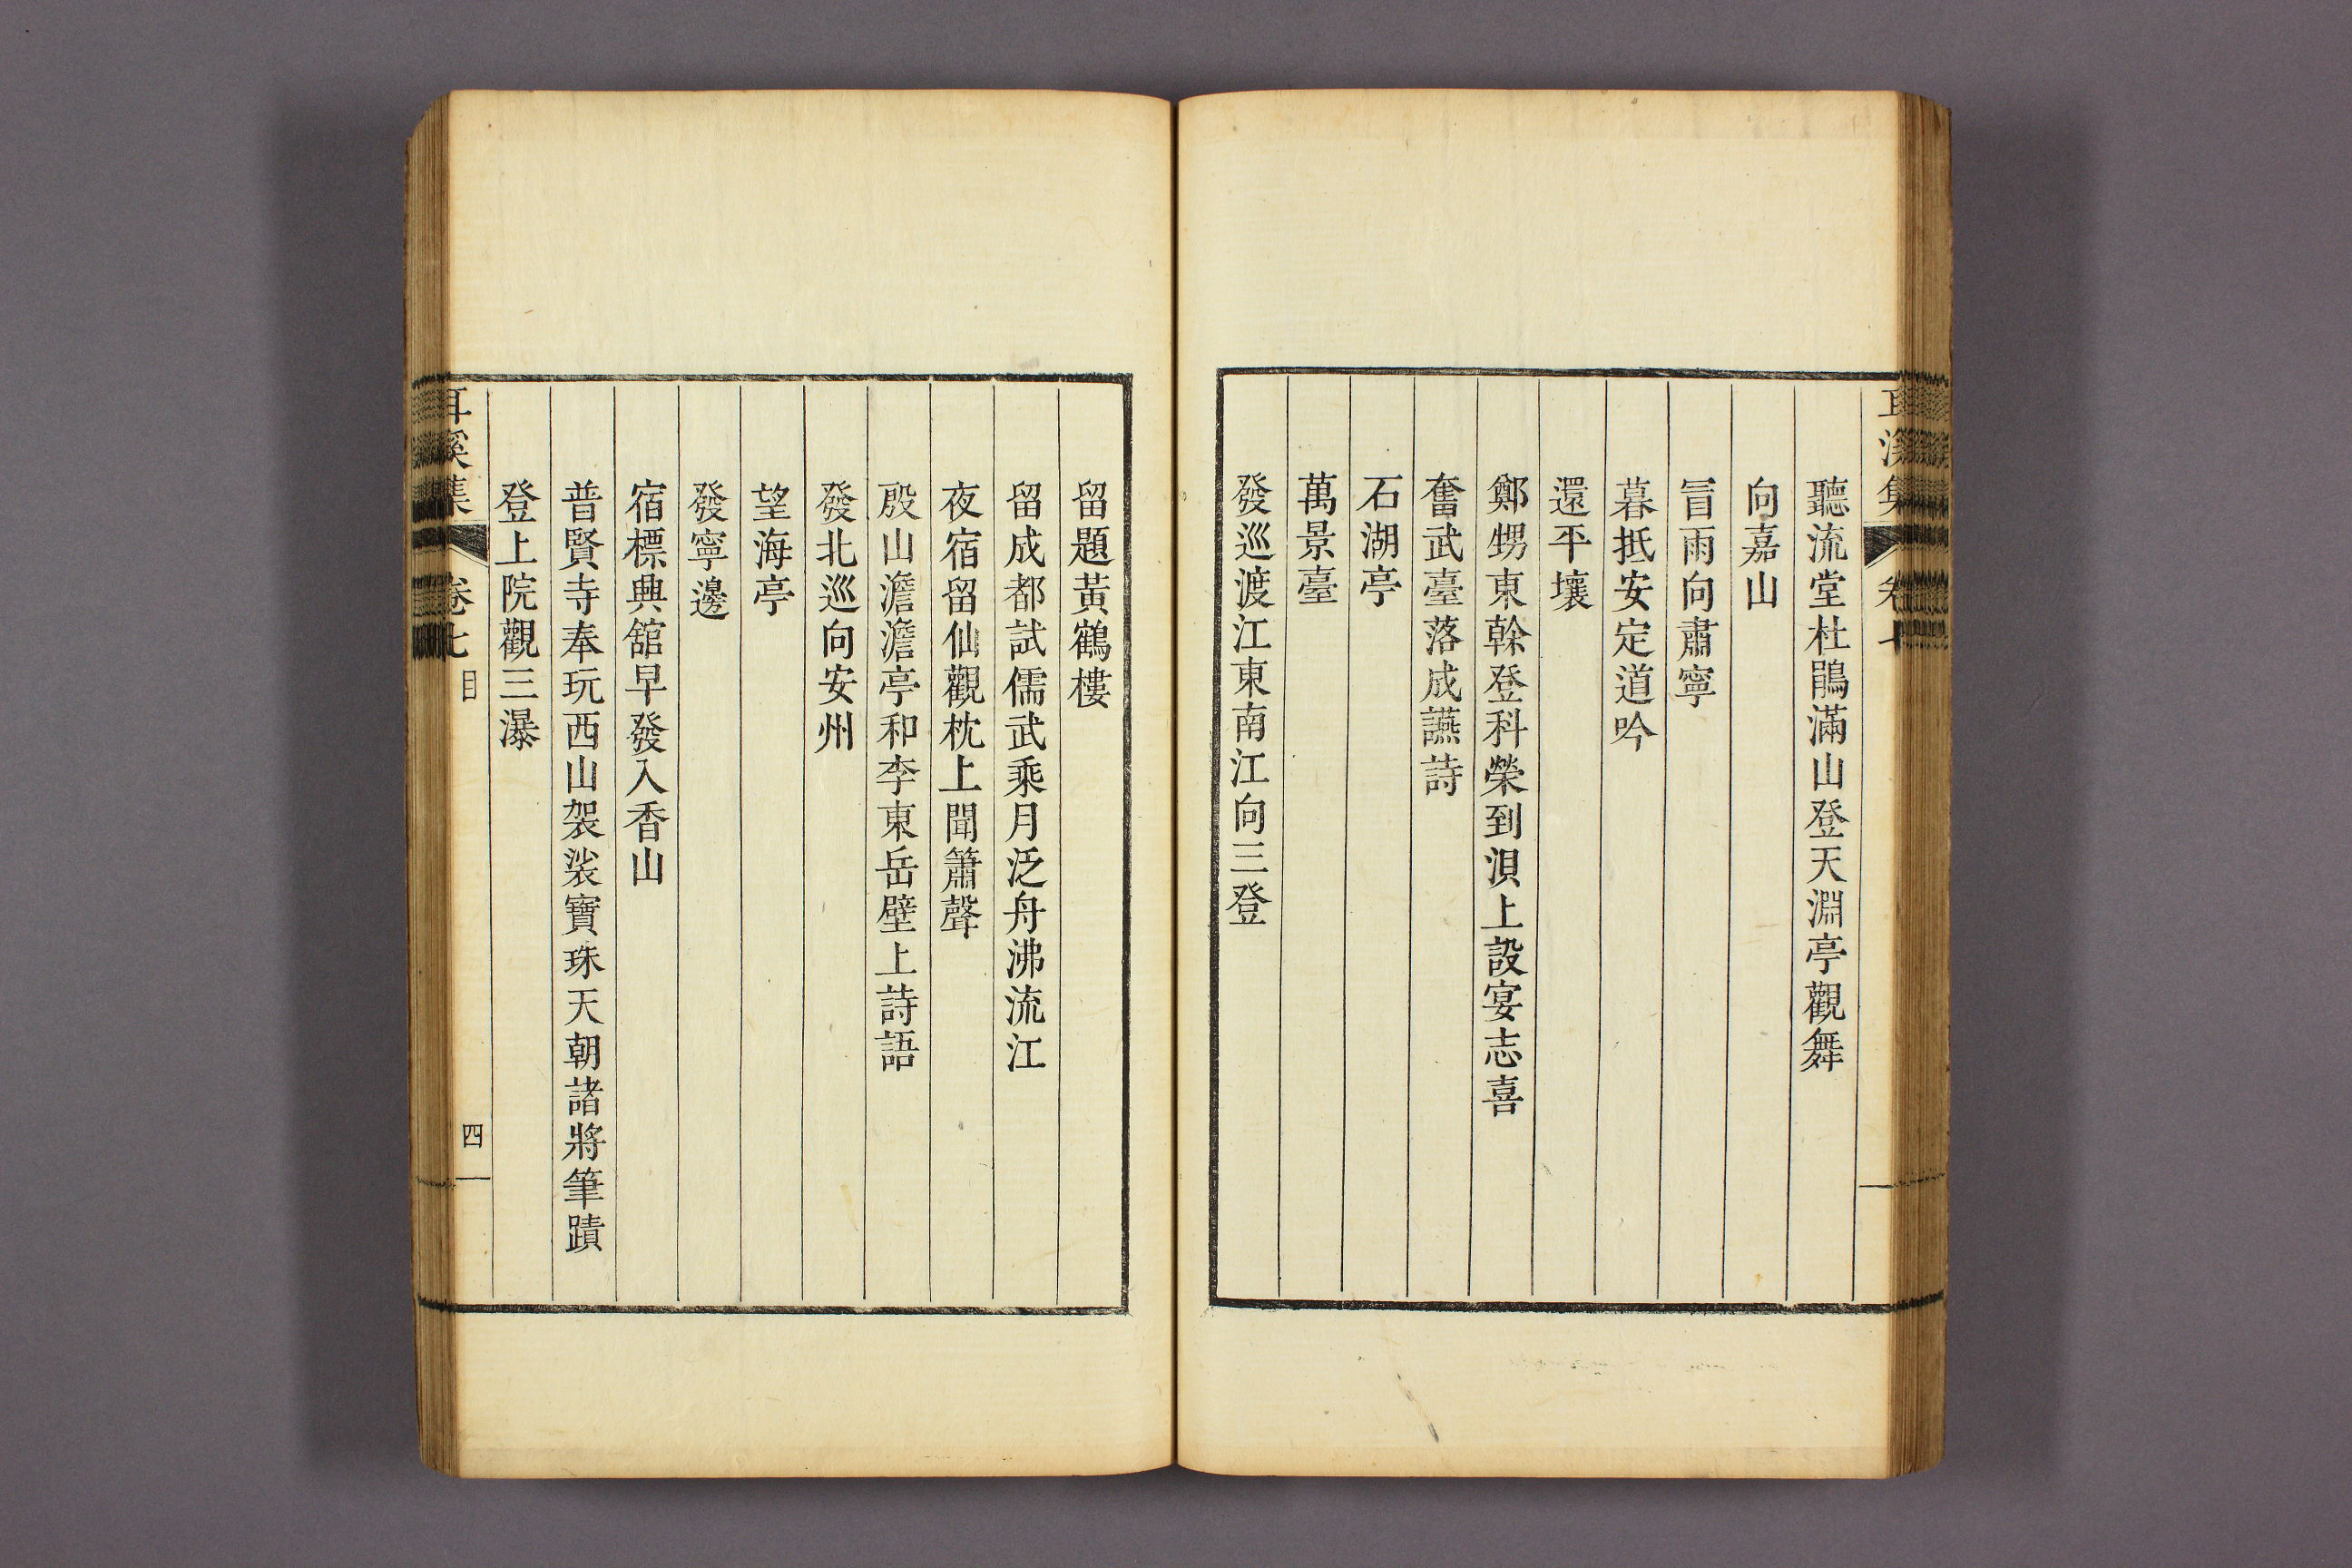 聽流堂杜鵑滿山登天淵亭觀舞
向嘉山
冒雨向肅寧
暮抵安定道吟
還平壤
鄭甥東榦登科榮到浿上設宴志喜
奮武臺落成讌詩
石湖亭
萬景臺
發巡渡江東南江向三登
留題黃鶴樓
留成都試儒武乘月泛舟沸流江
夜宿留仙觀枕上聞簫聲
殷山澹澹亭和李東岳壁上詩語
發北巡向安州
望海亭
發寧邊
宿標典舘早發入香山
普賢寺奉玩西山袈裟寶珠天朝諸將筆蹟
登上院觀三瀑
耳溪集 卷七 目 四